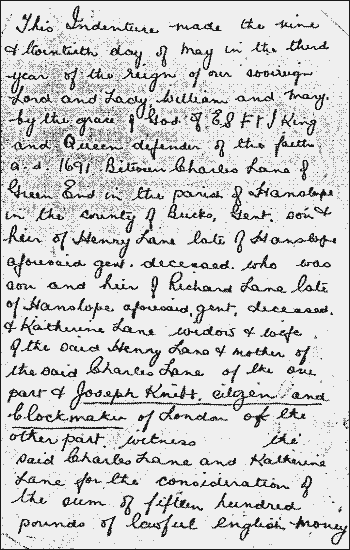 This Indenture made the nine
& twintieth day of May in the third
year of the reign of our sovereign
Lord and Lady, William and Mary.
by the grace of God of E S F & I King
and Queen defender of the faith
a.d. 1691 Between Charles Lane of
Green End in the parish of Hanslope
in the county of Bucks, Gent. son &
heir of Henry Lane late of Hanslope
aforesaid gent. deceased. who was
son and heir of Richard Lane late
of Hanslope aforesaid, gent, deceased.
& Katherine Lane widow & wife
of the said Henry Lane & mother of
the said Charles Lane of the one
part & Joseph Knibb, citizen and
Clockmaker of London of the
other part witness the
said Charles Lane and Katherine
Lane for the consideration of
the sum of fifteen hundred
pounds of lawful english money